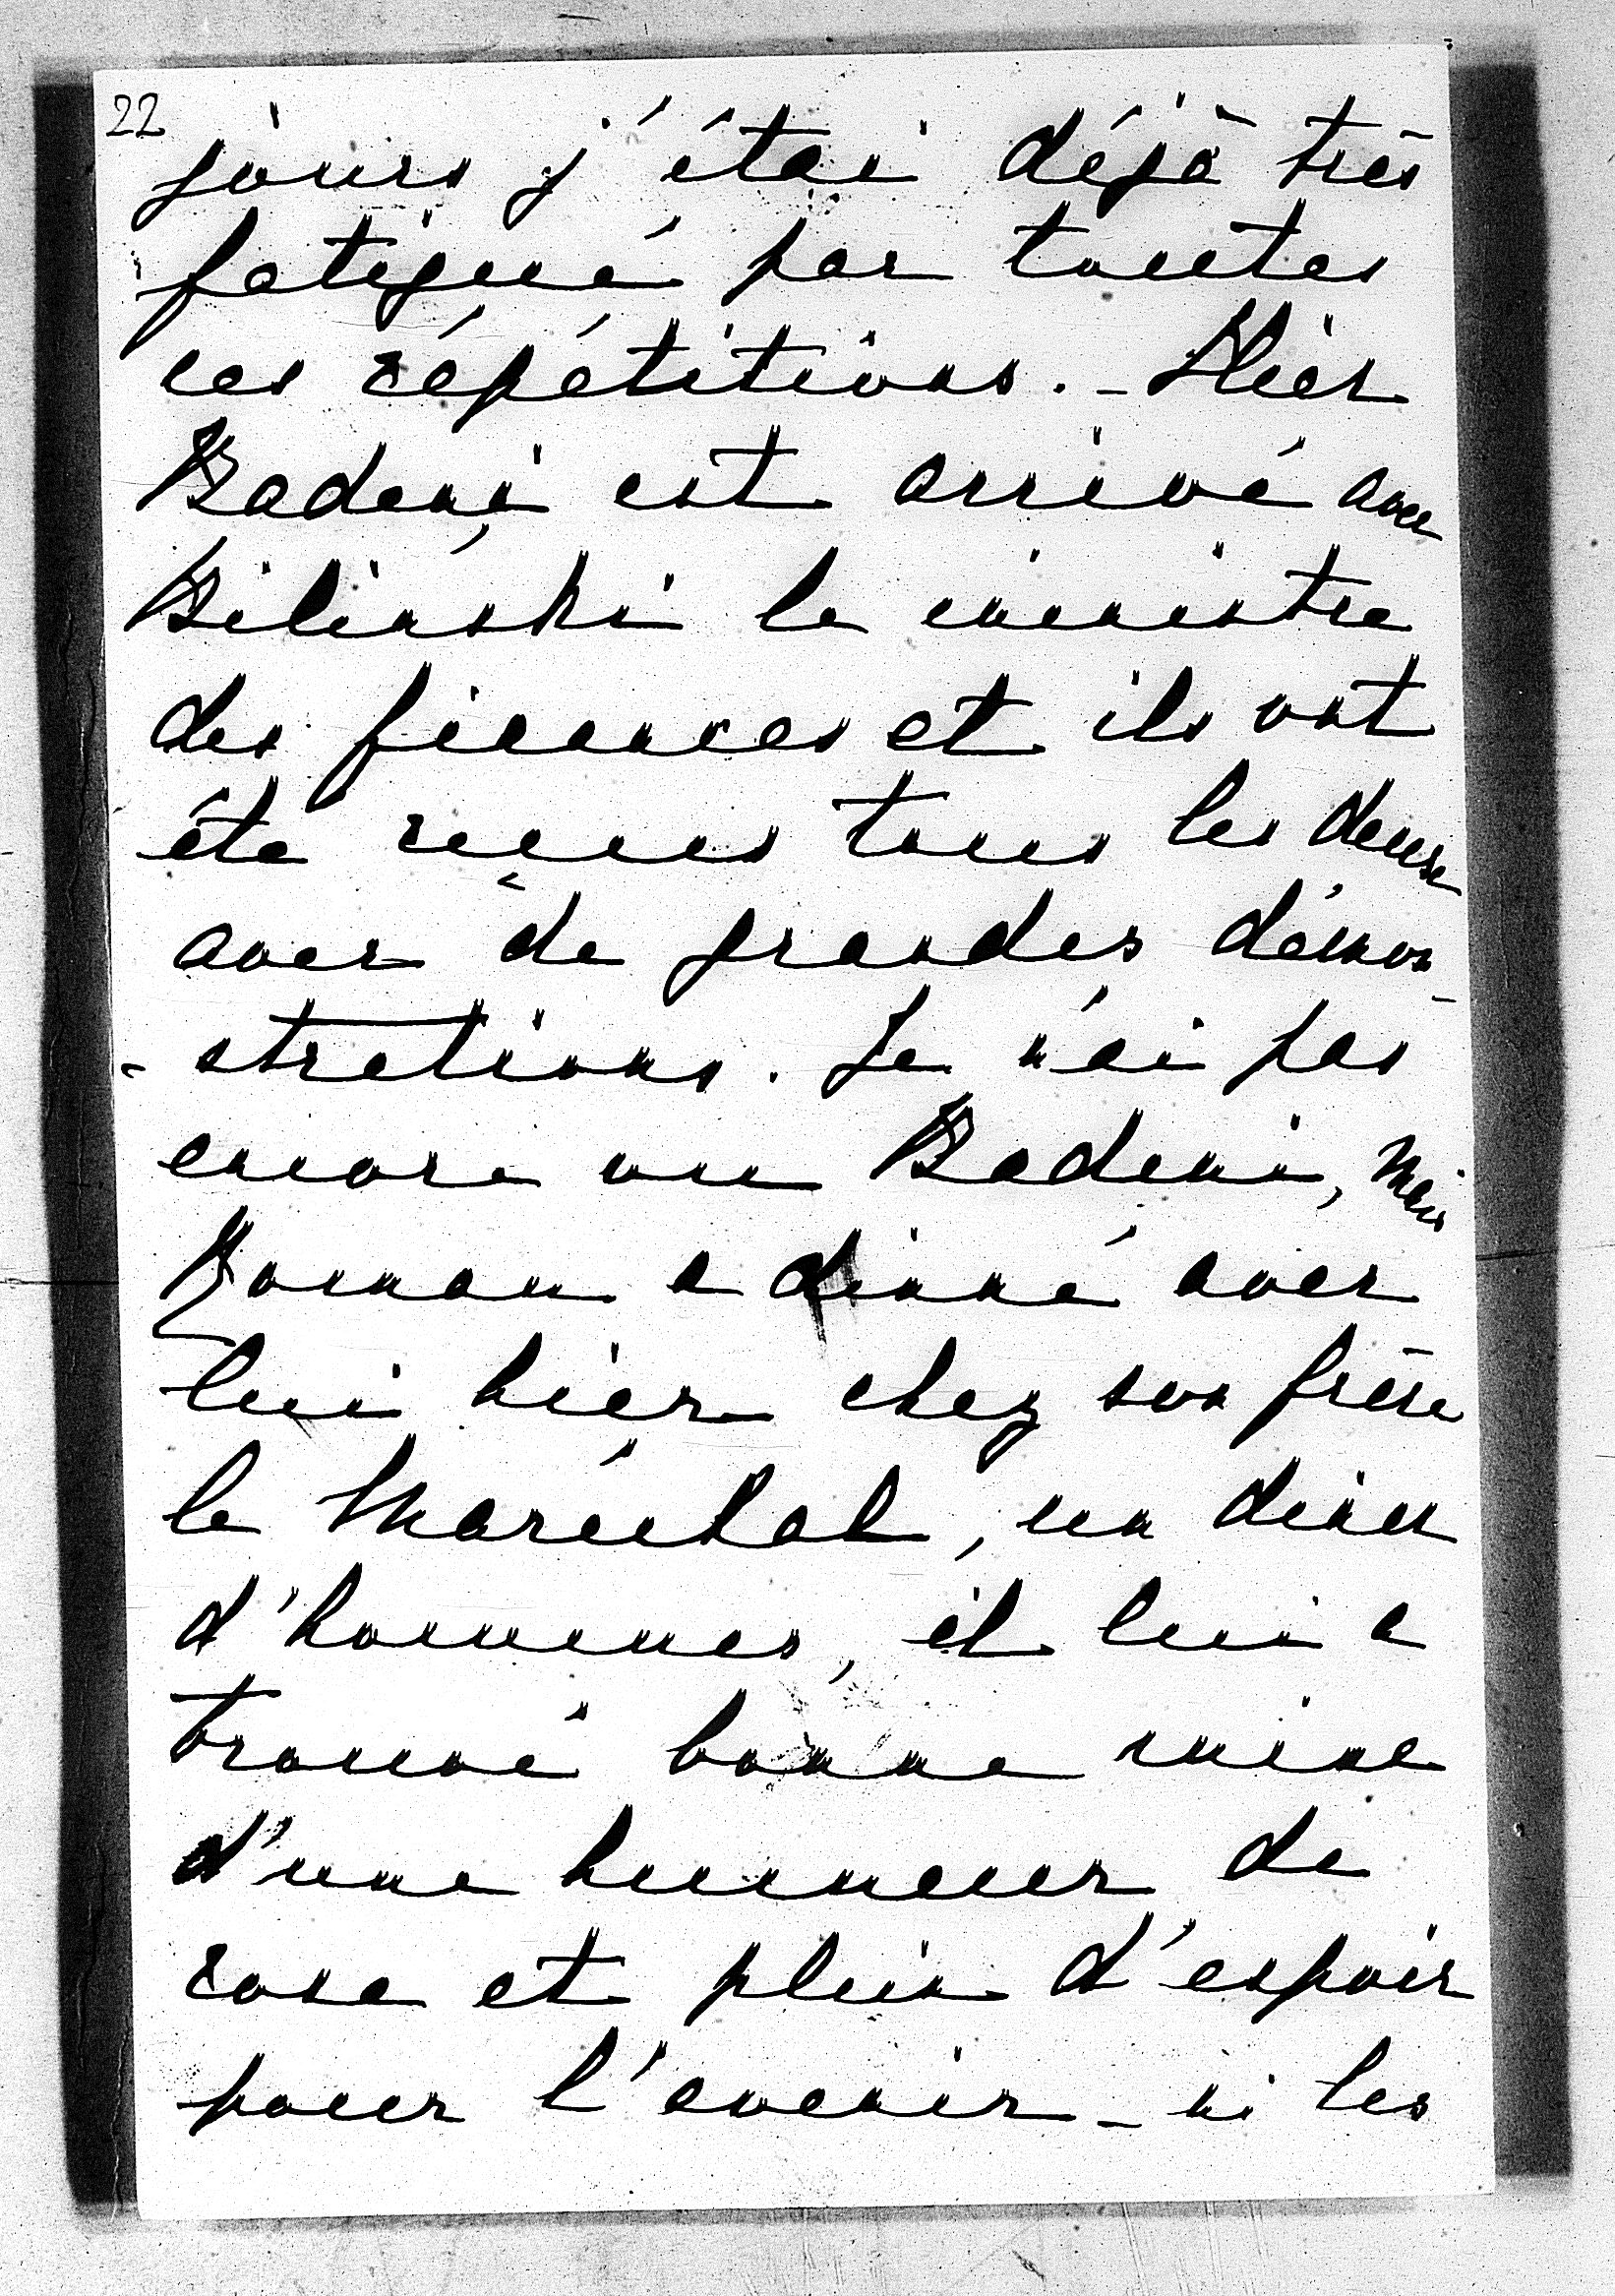 22
jours j'étai déjà très
fatigué par toutes
ces répétitions. - Hier
Badeni est arrivé avec
Bilinski le ministre
des finances et ils ont
été reçus tous les deux
avec de grandes démon-
-strations. Je n'ai pas
encore vu Badeni, mais
Roman a dinné avec
lui hier chez son frère
le Maréchal, un diner
d'hommes, il lui a
trouvé bonne mine
d'une humeur de
rose et plein d'espoir
pour l'avenir - ni les